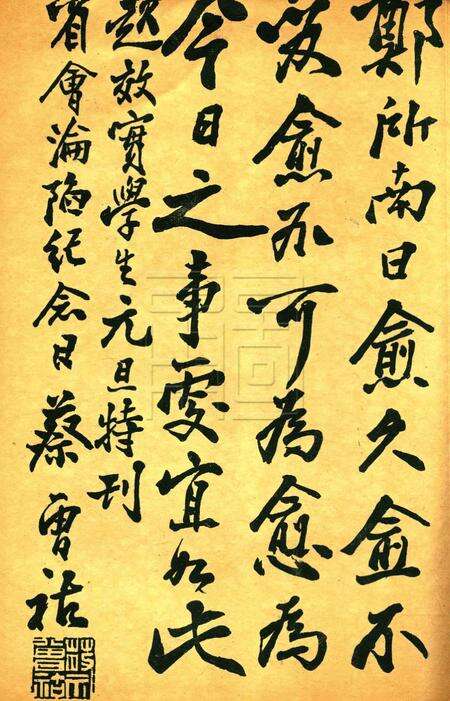 鄭所南曰愈久愈不
變愈不可為愈為
今日之事處宜如此
題效實學生元旦特刊
省會淪陷紀念日 蔡曾祜